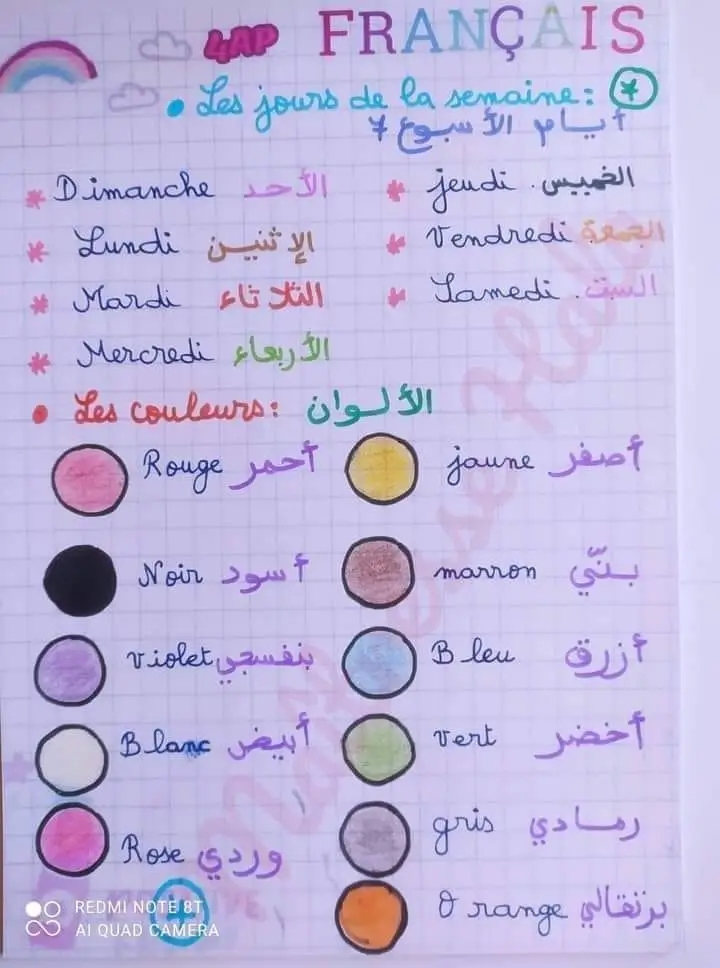 4AP FRANÇAIS
• Les jours de la semaine : 7
أيام الأسبوع 7
* Dimanche الأحد
* Lundi الإثنين
* Mardi الثلاثاء
* Mercredi الأربعاء
* jeudi . الخميس
* Vendredi الجمعة
* Samedi . السبت
• Les couleurs : الألوان
Rouge أحمر
jaune أصفر
Noir أسود
marron بنّي
violet بنفسجي
Bleu أزرق
Blanc أبيض
vert أخضر
Rose وردي
gris رمادي
Orange برتقالي
REDMI NOTE 8T
AI QUAD CAMERA